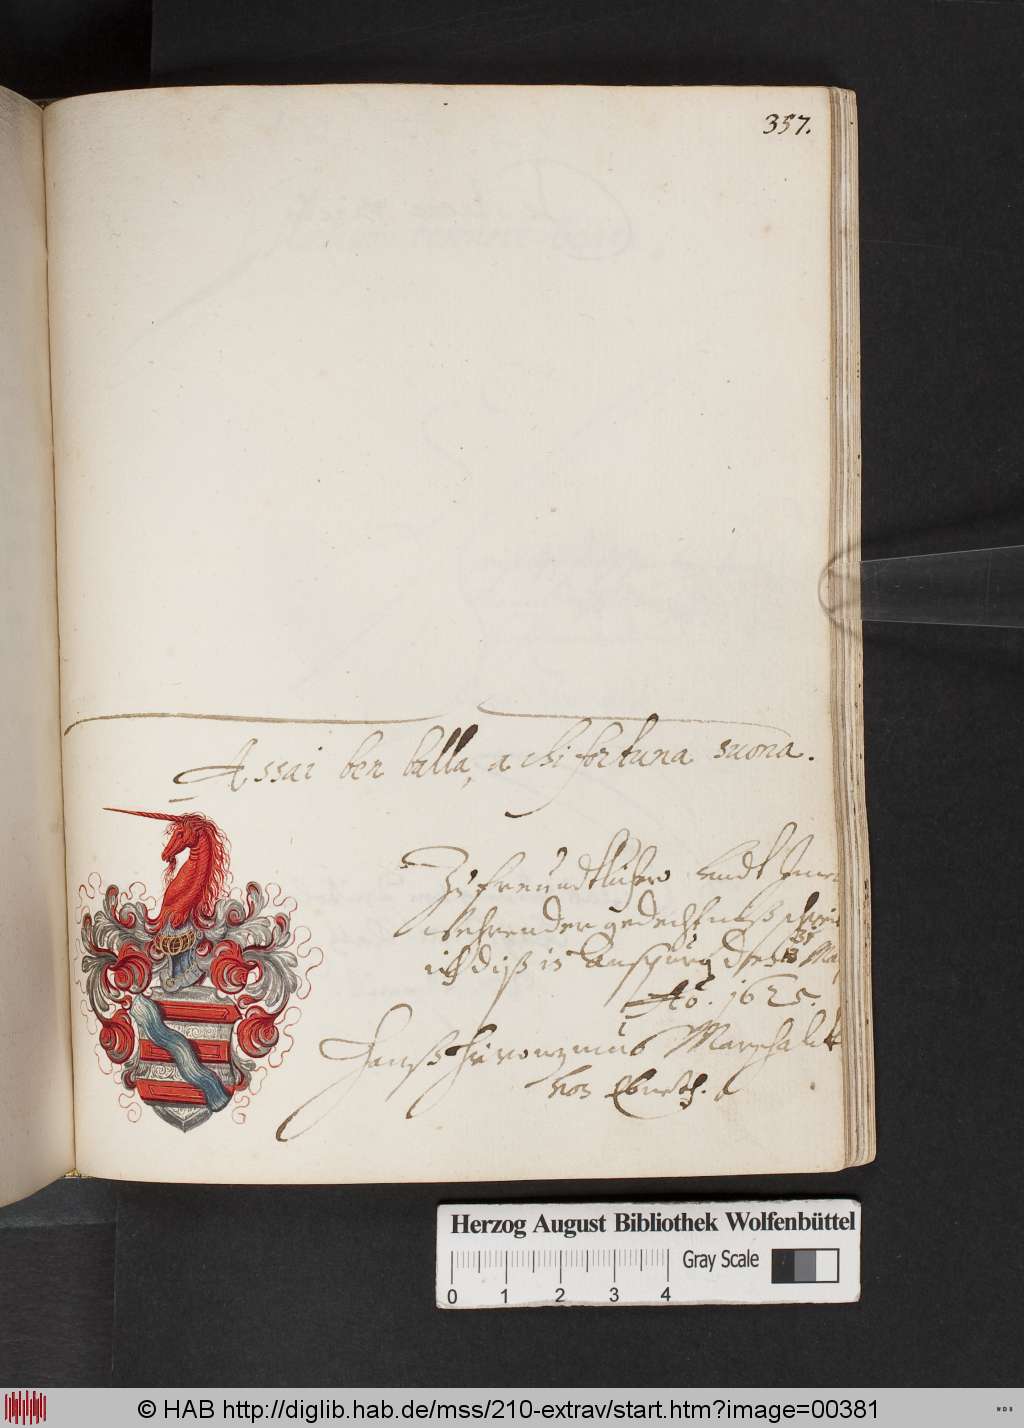 357.
Assai ben balla, a chi fortuna suona.
Zu freundtlicher undt Immer
wehrender gedechtnuß schreib
ich diß in Augspurg den
31
13 Ma
Aō. 1625.
Hanß Hieronymus Marschalck
von Ebneth.
Herzog August Bibliothek Wolfenbüttel
Gray Scale
0 1 2 3 4
© HAB http://diglib.hab.de/mss/210-extrav/start.htm?image=00381